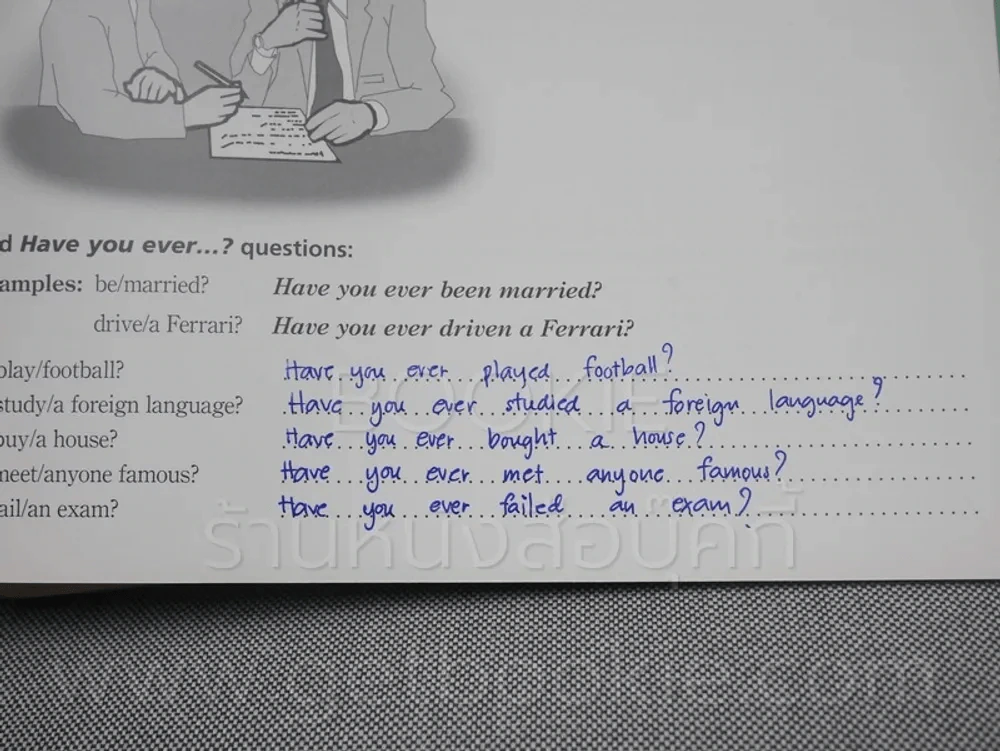 d Have you ever...? questions:
amples: be/married? Have you ever been married?
drive/a Ferrari? Have you ever driven a Ferrari?
play/football? Have you ever played football?
study/a foreign language? Have you ever studied a foreign language?
buy/a house? Have you ever bought a house?
meet/anyone famous? Have you ever met anyone famous?
ail/an exam? Have you ever failed an exam?
BOOKIE
ร้านหนังสือบุ๊คกี้